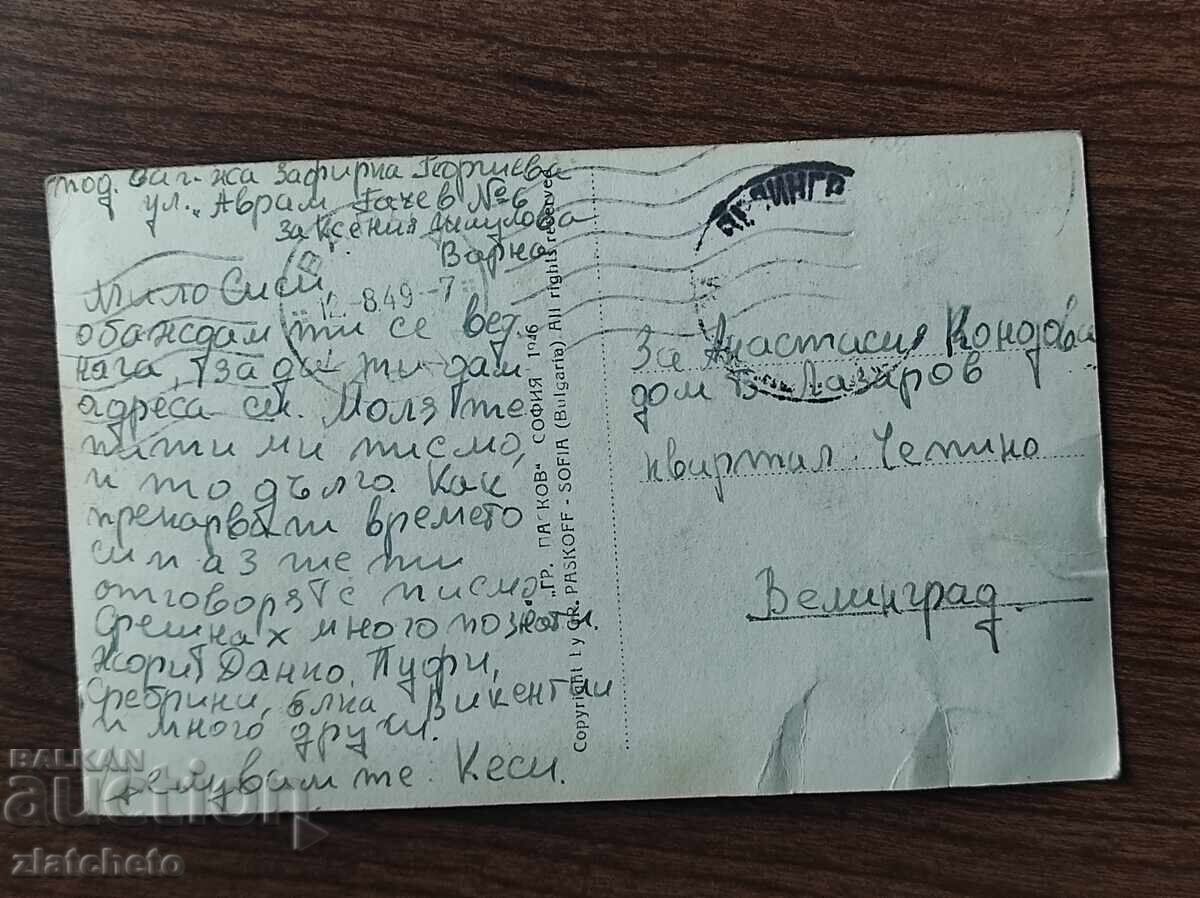 под. Заг-жа Зафирка Георгиева
ул. „Аврам Гачев №6
За Ксения
Варна
12.8.49-7
Мило Сиси,
обаждам ти се вед.
нага, за да ти дам
адреса си. Моля те
пиши ми писмо,
и то дълго. Как
прекарваш времето
си аз ще ти
отговоря с писмо.
Срещнах много познати.
Жорж Данко, Пуфи,
Сребрини, Елка Викентии
и много други.
Целувам те Кеси.
"ГР. ПАСКОВ" СОФИЯ 1946
Copyright by GR. PASKOFF - SOFIA (Bulgaria) All rights reserved
ЛЕНИНГР
За Анастасия Кондова
дом В. Лазаров
квартал Чепино
Велинград.
BALKAN
auction
zlatcheto